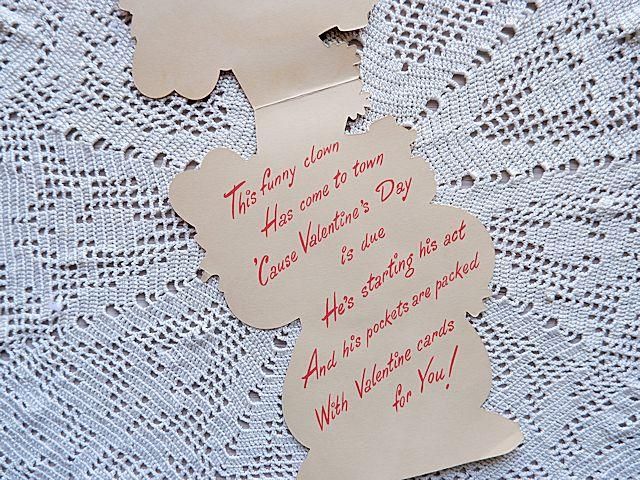 This funny clown
Has come to town
'Cause Valentine's Day
is due
He's starting his act
And his pockets are packed
With Valentine cards
for You!